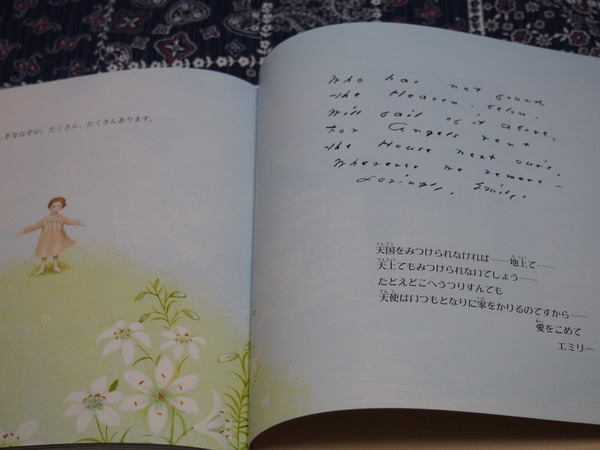 ぎななぞが、たくさん、たくさんあります。
Who has not found
the Heaven - below -
Will fail of it above.
For Angels rent
the House next our's,
Wherever we remove -
Lovingly, Emily.
天国をみつけられなければ——地上で——
天上でもみつけられないでしょう——
たとえどこへうつりすんでも
天使はいつもとなりに家をかりるのですから——
愛をこめて
エミリー